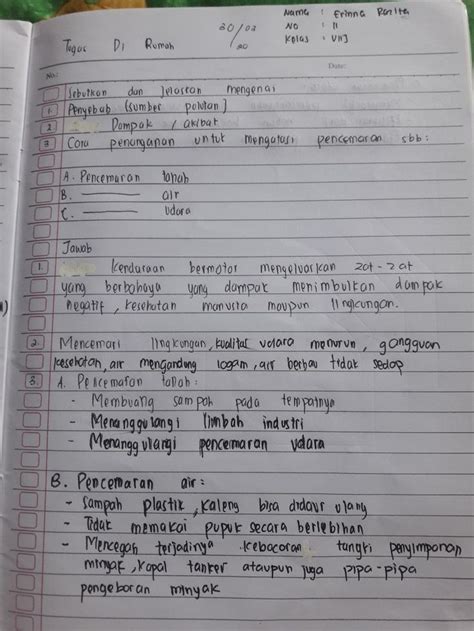 Nama : Erinna Rarita
No : 11
Kelas : VII J
30/03/20
Tugas Di Rumah
No:
Date:
Sebutkan dan jelaskan mengenai
1. Penyebab (sumber polutan)
2 Dampak / akibat
3 Cara penanganan untuk mengatasi pencemaran sbb:
A. Pencemaran tanah
B. ——— air
C. ——— udara
Jawab
1. kendaraan bermotor mengeluarkan zat-zat
yang berbahaya yang dampak menimbulkan dampak
negatif, kesehatan manusia maupun lingkungan.
2. Mencemari lingkungan, kualitas udara menurun, gangguan
kesehatan, air mengandung logam, air berbau tidak sedap
3. A. Pencemaran tanah:
- Membuang sampah pada tempatnya
- Menanggulangi limbah industri
- Menanggulangi pencemaran udara
B. Pencemaran air:
- Sampah plastik, kaleng bisa didaur ulang
- Tidak memakai pupuk secara berlebihan
- Mencegah terjadinya kebocoran tangki penyimpanan
minyak, kapal tanker ataupun juga pipa-pipa
pengeboran minyak